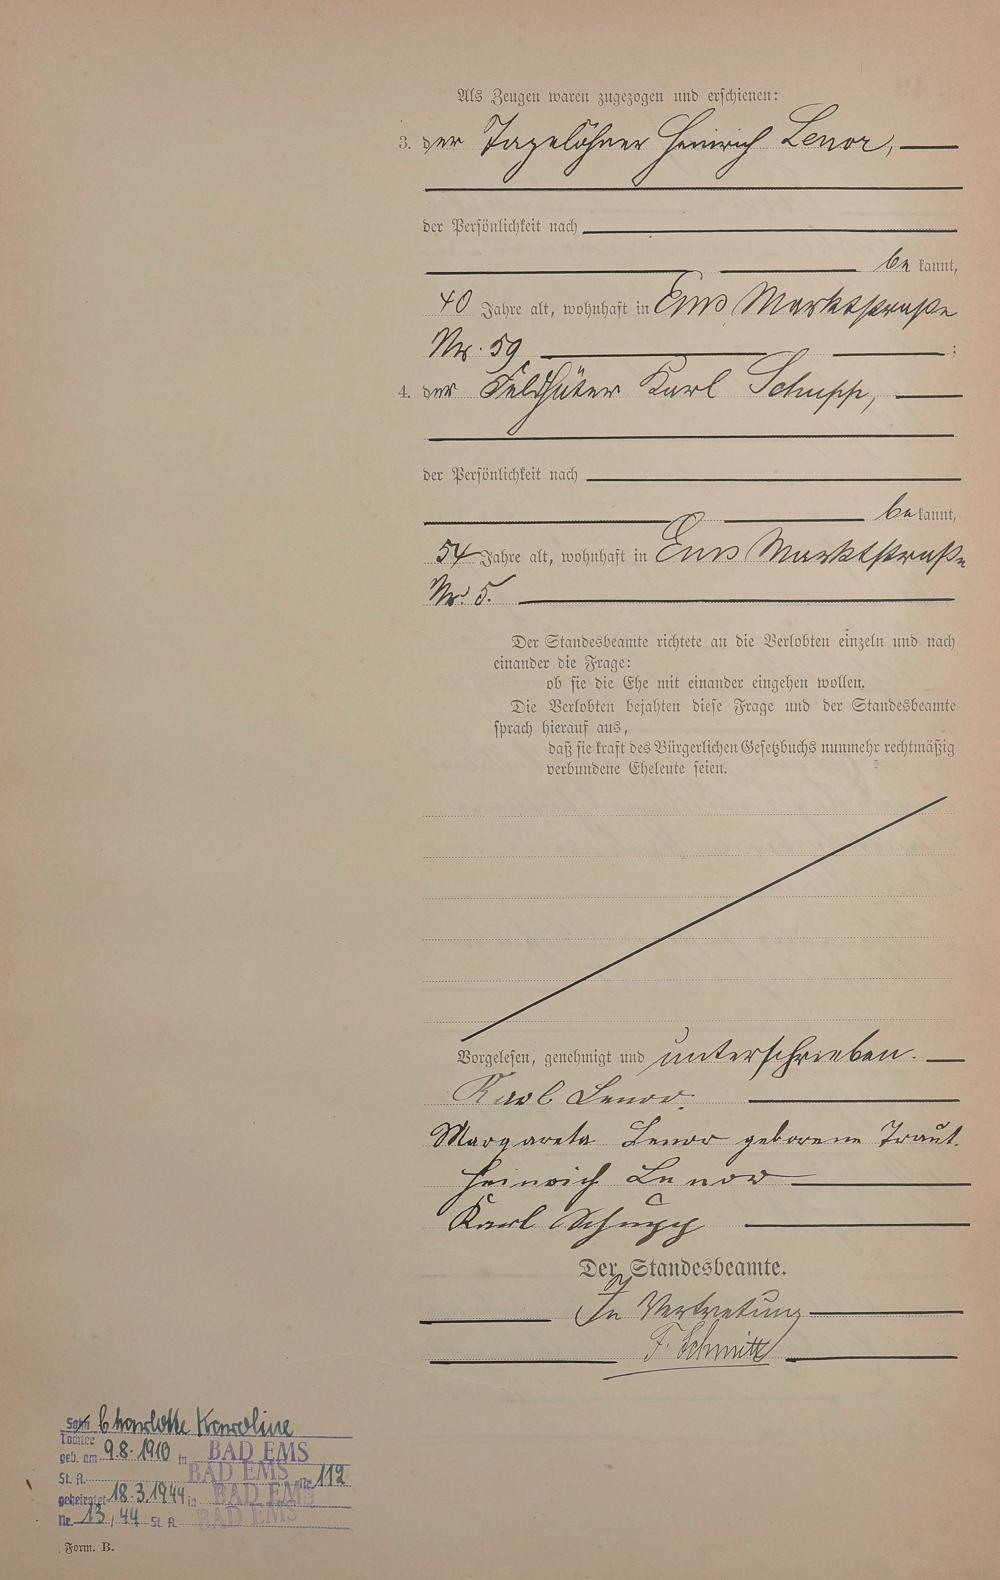 Als Zeugen waren zugezogen und erschienen:
3. der Tagelöhner Heinrich Lenor,
der Persönlichkeit nach
be kannt,
40 Jahre alt, wohnhaft in Ems Marktstraße
Nr. 59 ;
4. der Feldhüter Karl Schupp,
der Persönlichkeit nach
be kannt,
54 Jahre alt, wohnhaft in Ems Marktstraße
Nr. 5.
Der Standesbeamte richtete an die Verlobten einzeln und nach
einander die Frage:
ob sie die Ehe mit einander eingehen wollen.
Die Verlobten bejahten diese Frage und der Standesbeamte
sprach hierauf aus,
daß sie kraft des Bürgerlichen Gesetzbuchs nunmehr rechtmäßig
verbundene Eheleute seien.
Vorgelesen, genehmigt und unterschrieben.
Karl Lenor.
Margareta Lenor geborene Traut.
Heinrich Lenor
Karl Schupp
Der Standesbeamte.
In Vertretung
F. Schmitt
Sohn Charlotte Karoline
Tochter
geb. am 9.8.1910 in BAD EMS
St. A. BAD EMS Nr. 112
geheiratet 18.3.1944 in BAD EMS
Nr. 13/44 St. A. BAD EMS
Form. B.